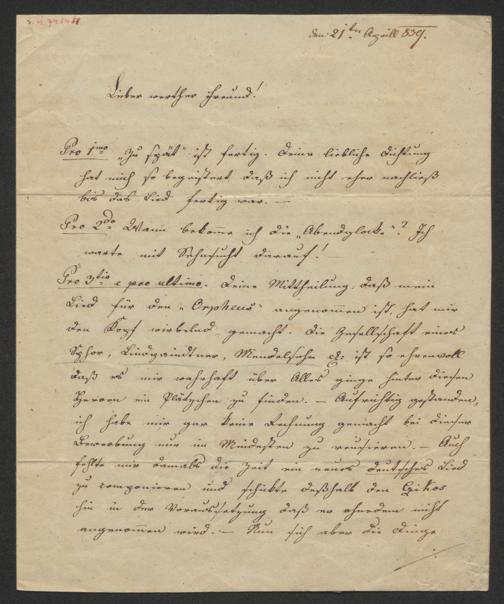 den 21ten Aprill 839.
Lieber werther Freund!
Pro 1mo "Zu spät" ist fertig. Deine liebliche Dichtung
hat mich so begeistert daß ich nicht eher nachließ
bis das Lied fertig war. —
Pro 2do Wann bekomme ich die "Abendglocke"? Ich
warte mit Sehnsucht darauf! —
Pro 3tio e poo ultimo. Deine Mittheilung, daß mein
Lied für den "Orpheus" angenommen ist, hat mir
den Kopf wirbelnd gemacht. Die Gesellschaft eines
Spohr, Lindpaindtner, Mendelsohn ist so ehrenvoll
daß es mir wahrhaft über Alles ginge hinter diesen
Herren ein Plätzchen zu finden. — Aufrichtig gestanden,
ich habe mir gar keine Rechnung gemacht bei dieser
Bewerbung nur im Mindesten zu reusieren. — Auch
fehlte mir damals die Zeit ein neues deutsches Lied
zu componieren und schickte deßhalb den
hin in der Voraussetzung daß er ohnedem nicht
angenommen wird. — Nun sich aber die Dinge